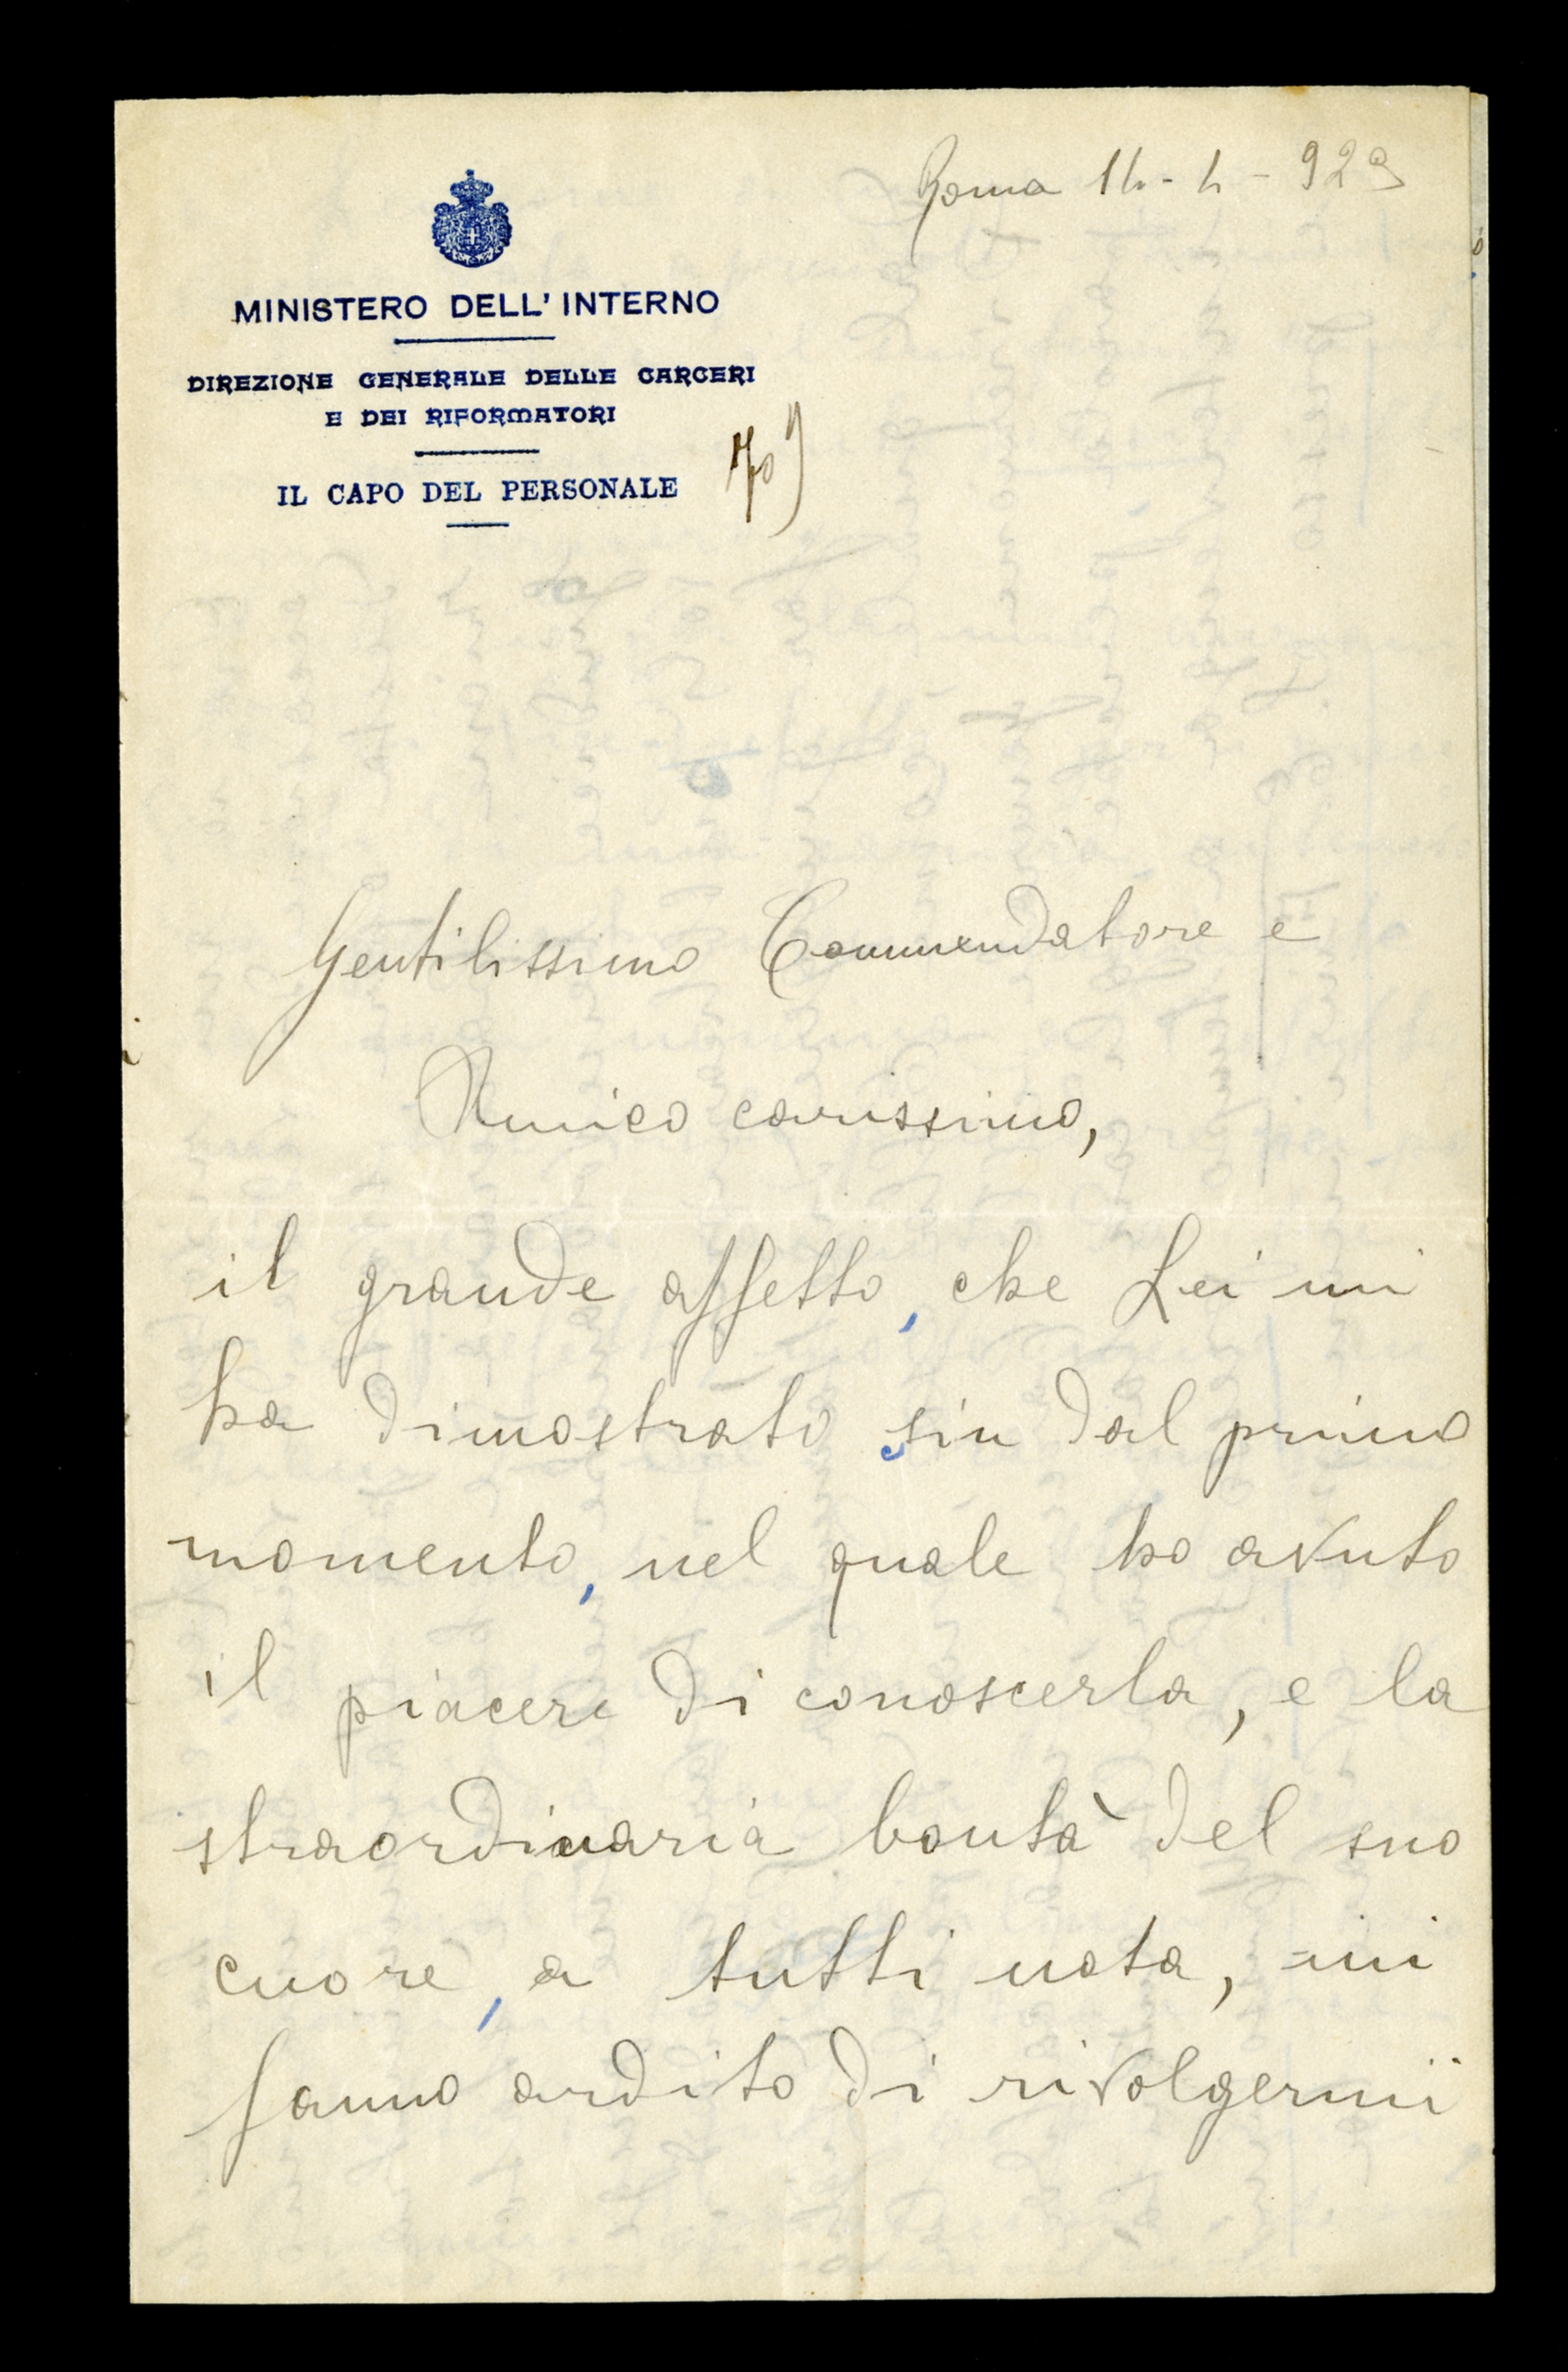 Roma 14-4-923
MINISTERO DELL' INTERNO
DIREZIONE GENERALE DELLE CARCERI
E DEI RIFORMATORI
IL CAPO DEL PERSONALE
Gentilissimo Commendatore e
Amico carissimo,
il grande affetto, che Lei mi
ha dimostrato, sin dal primo
momento, nel quale ho avuto
il piacere di conoscerla, e la
straordinaria bontà del suo
cuore, a tutti nota, mi
fanno ardito di rivolgermi